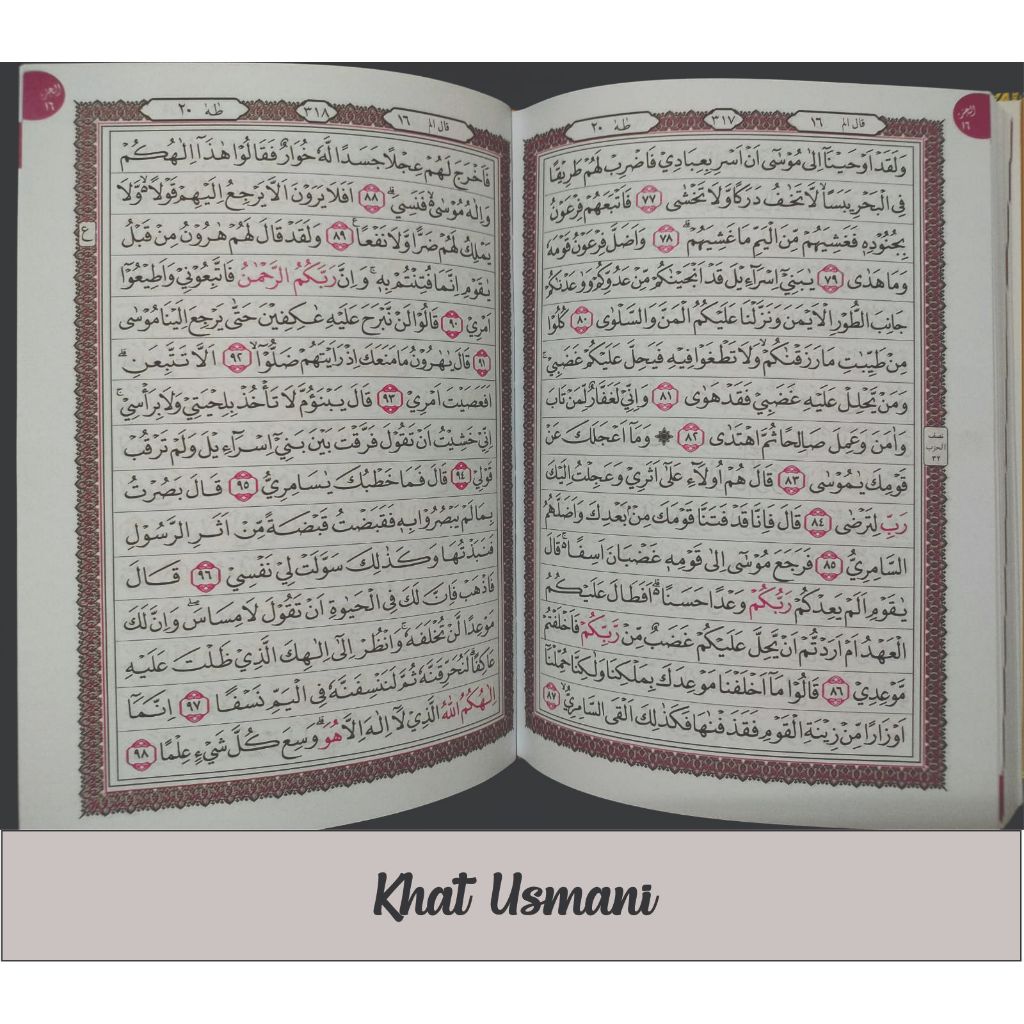 الجزء ١٦
قال الم ١٦
٣١٧
طٰهٰ ٢٠
وَلَقَدْ اَوْحَيْنَآ اِلٰى مُوْسٰٓى اَنْ اَسْرِ بِعِبَادِيْ فَاضْرِبْ لَهُمْ طَرِيْقًا
فِى الْبَحْرِ يَبَسًاۙ لَّا تَخٰفُ دَرَكًا وَّلَا تَخْشٰى ٧٧ فَاَتْبَعَهُمْ فِرْعَوْنُ
بِجُنُوْدِهٖ فَغَشِيَهُمْ مِّنَ الْيَمِّ مَا غَشِيَهُمْ ۗ ٧٨ وَاَضَلَّ فِرْعَوْنُ قَوْمَهٗ
وَمَا هَدٰى ٧٩ يٰبَنِيْٓ اِسْرَاۤءِيْلَ قَدْ اَنْجَيْنٰكُمْ مِّنْ عَدُوِّكُمْ وَوٰعَدْنٰكُمْ
جَانِبَ الطُّوْرِ الْاَيْمَنَ وَنَزَّلْنَا عَلَيْكُمُ الْمَنَّ وَالسَّلْوٰى ٨٠ كُلُوْا
مِنْ طَيِّبٰتِ مَا رَزَقْنٰكُمْۙ وَلَا تَطْغَوْا فِيْهِ فَيَحِلَّ عَلَيْكُمْ غَضَبِيْۚ
وَمَنْ يَّحْلِلْ عَلَيْهِ غَضَبِيْ فَقَدْ هَوٰى ٨١ وَاِنِّيْ لَغَفَّارٌ لِّمَنْ تَابَ
وَاٰمَنَ وَعَمِلَ صَالِحًا ثُمَّ اهْتَدٰى ٨٢ ۞ وَمَآ اَعْجَلَكَ عَنْ
قَوْمِكَ يٰمُوْسٰى ٨٣ قَالَ هُمْ اُولَاۤءِ عَلٰٓى اَثَرِيْ وَعَجِلْتُ اِلَيْكَ
رَبِّ لِتَرْضٰى ٨٤ قَالَ فَاِنَّا قَدْ فَتَنَّا قَوْمَكَ مِنْۢ بَعْدِكَ وَاَضَلَّهُمُ
السَّامِرِيُّ ٨٥ فَرَجَعَ مُوْسٰٓى اِلٰى قَوْمِهٖ غَضْبَانَ اَسِفًا ەۚ قَالَ
يٰقَوْمِ اَلَمْ يَعِدْكُمْ رَبُّكُمْ وَعْدًا حَسَنًا ەۗ اَفَطَالَ عَلَيْكُمُ
الْعَهْدُ اَمْ اَرَدْتُّمْ اَنْ يَّحِلَّ عَلَيْكُمْ غَضَبٌ مِّنْ رَّبِّكُمْ فَاَخْلَفْتُمْ
مَّوْعِدِيْ ٨٦ قَالُوْا مَآ اَخْلَفْنَا مَوْعِدَكَ بِمَلْكِنَا وَلٰكِنَّا حُمِّلْنَآ
اَوْزَارًا مِّنْ زِيْنَةِ الْقَوْمِ فَقَذَفْنٰهَا فَكَذٰلِكَ اَلْقَى السَّامِرِيُّۙ ٨٧
نصف
الحزب
٣٢
الجزء ١٦
قال الم ١٦
٣١٨
طٰهٰ ٢٠
فَاَخْرَجَ لَهُمْ عِجْلًا جَسَدًا لَّهٗ خُوَارٌ فَقَالُوْا هٰذَآ اِلٰهُكُمْ
وَاِلٰهُ مُوْسٰى ەۙ فَنَسِيَ ۗ ٨٨ اَفَلَا يَرَوْنَ اَلَّا يَرْجِعُ اِلَيْهِمْ قَوْلًا ەۙ وَّلَا
يَمْلِكُ لَهُمْ ضَرًّا وَّلَا نَفْعًا ࣖ ٨٩ وَلَقَدْ قَالَ لَهُمْ هٰرُوْنُ مِنْ قَبْلُ
يٰقَوْمِ اِنَّمَا فُتِنْتُمْ بِهٖۚ وَاِنَّ رَبَّكُمُ الرَّحْمٰنُ فَاتَّبِعُوْنِيْ وَاَطِيْعُوْٓا
اَمْرِيْ ٩٠ قَالُوْا لَنْ نَّبْرَحَ عَلَيْهِ عٰكِفِيْنَ حَتّٰى يَرْجِعَ اِلَيْنَا مُوْسٰى
٩١ قَالَ يٰهٰرُوْنُ مَا مَنَعَكَ اِذْ رَاَيْتَهُمْ ضَلُّوْٓاۙ ٩٢ اَلَّا تَتَّبِعَنِۗ
اَفَعَصَيْتَ اَمْرِيْ ٩٣ قَالَ يَبْنَؤُمَّ لَا تَأْخُذْ بِلِحْيَتِيْ وَلَا بِرَأْسِيْۚ
اِنِّيْ خَشِيْتُ اَنْ تَقُوْلَ فَرَّقْتَ بَيْنَ بَنِيْٓ اِسْرَاۤءِيْلَ وَلَمْ تَرْقُبْ
قَوْلِيْ ٩٤ قَالَ فَمَا خَطْبُكَ يٰسَامِرِيُّ ٩٥ قَالَ بَصُرْتُ
بِمَا لَمْ يَبْصُرُوْا بِهٖ فَقَبَضْتُ قَبْضَةً مِّنْ اَثَرِ الرَّسُوْلِ
فَنَبَذْتُهَا وَكَذٰلِكَ سَوَّلَتْ لِيْ نَفْسِيْ ٩٦ قَالَ
فَاذْهَبْ فَاِنَّ لَكَ فِى الْحَيٰوةِ اَنْ تَقُوْلَ لَا مِسَاسَۖ وَاِنَّ لَكَ
مَوْعِدًا لَّنْ تُخْلَفَهٗۚ وَانْظُرْ اِلٰٓى اِلٰهِكَ الَّذِيْ ظَلْتَ عَلَيْهِ
عَاكِفًاۗ لَنُحَرِّقَنَّهٗ ثُمَّ لَنَنْسِفَنَّهٗ فِى الْيَمِّ نَسْفًا ٩٧ اِنَّمَآ
اِلٰهُكُمُ اللّٰهُ الَّذِيْ لَآ اِلٰهَ اِلَّا هُوَۗ وَسِعَ كُلَّ شَيْءٍ عِلْمًا ٩٨
ع
Khat Usmani